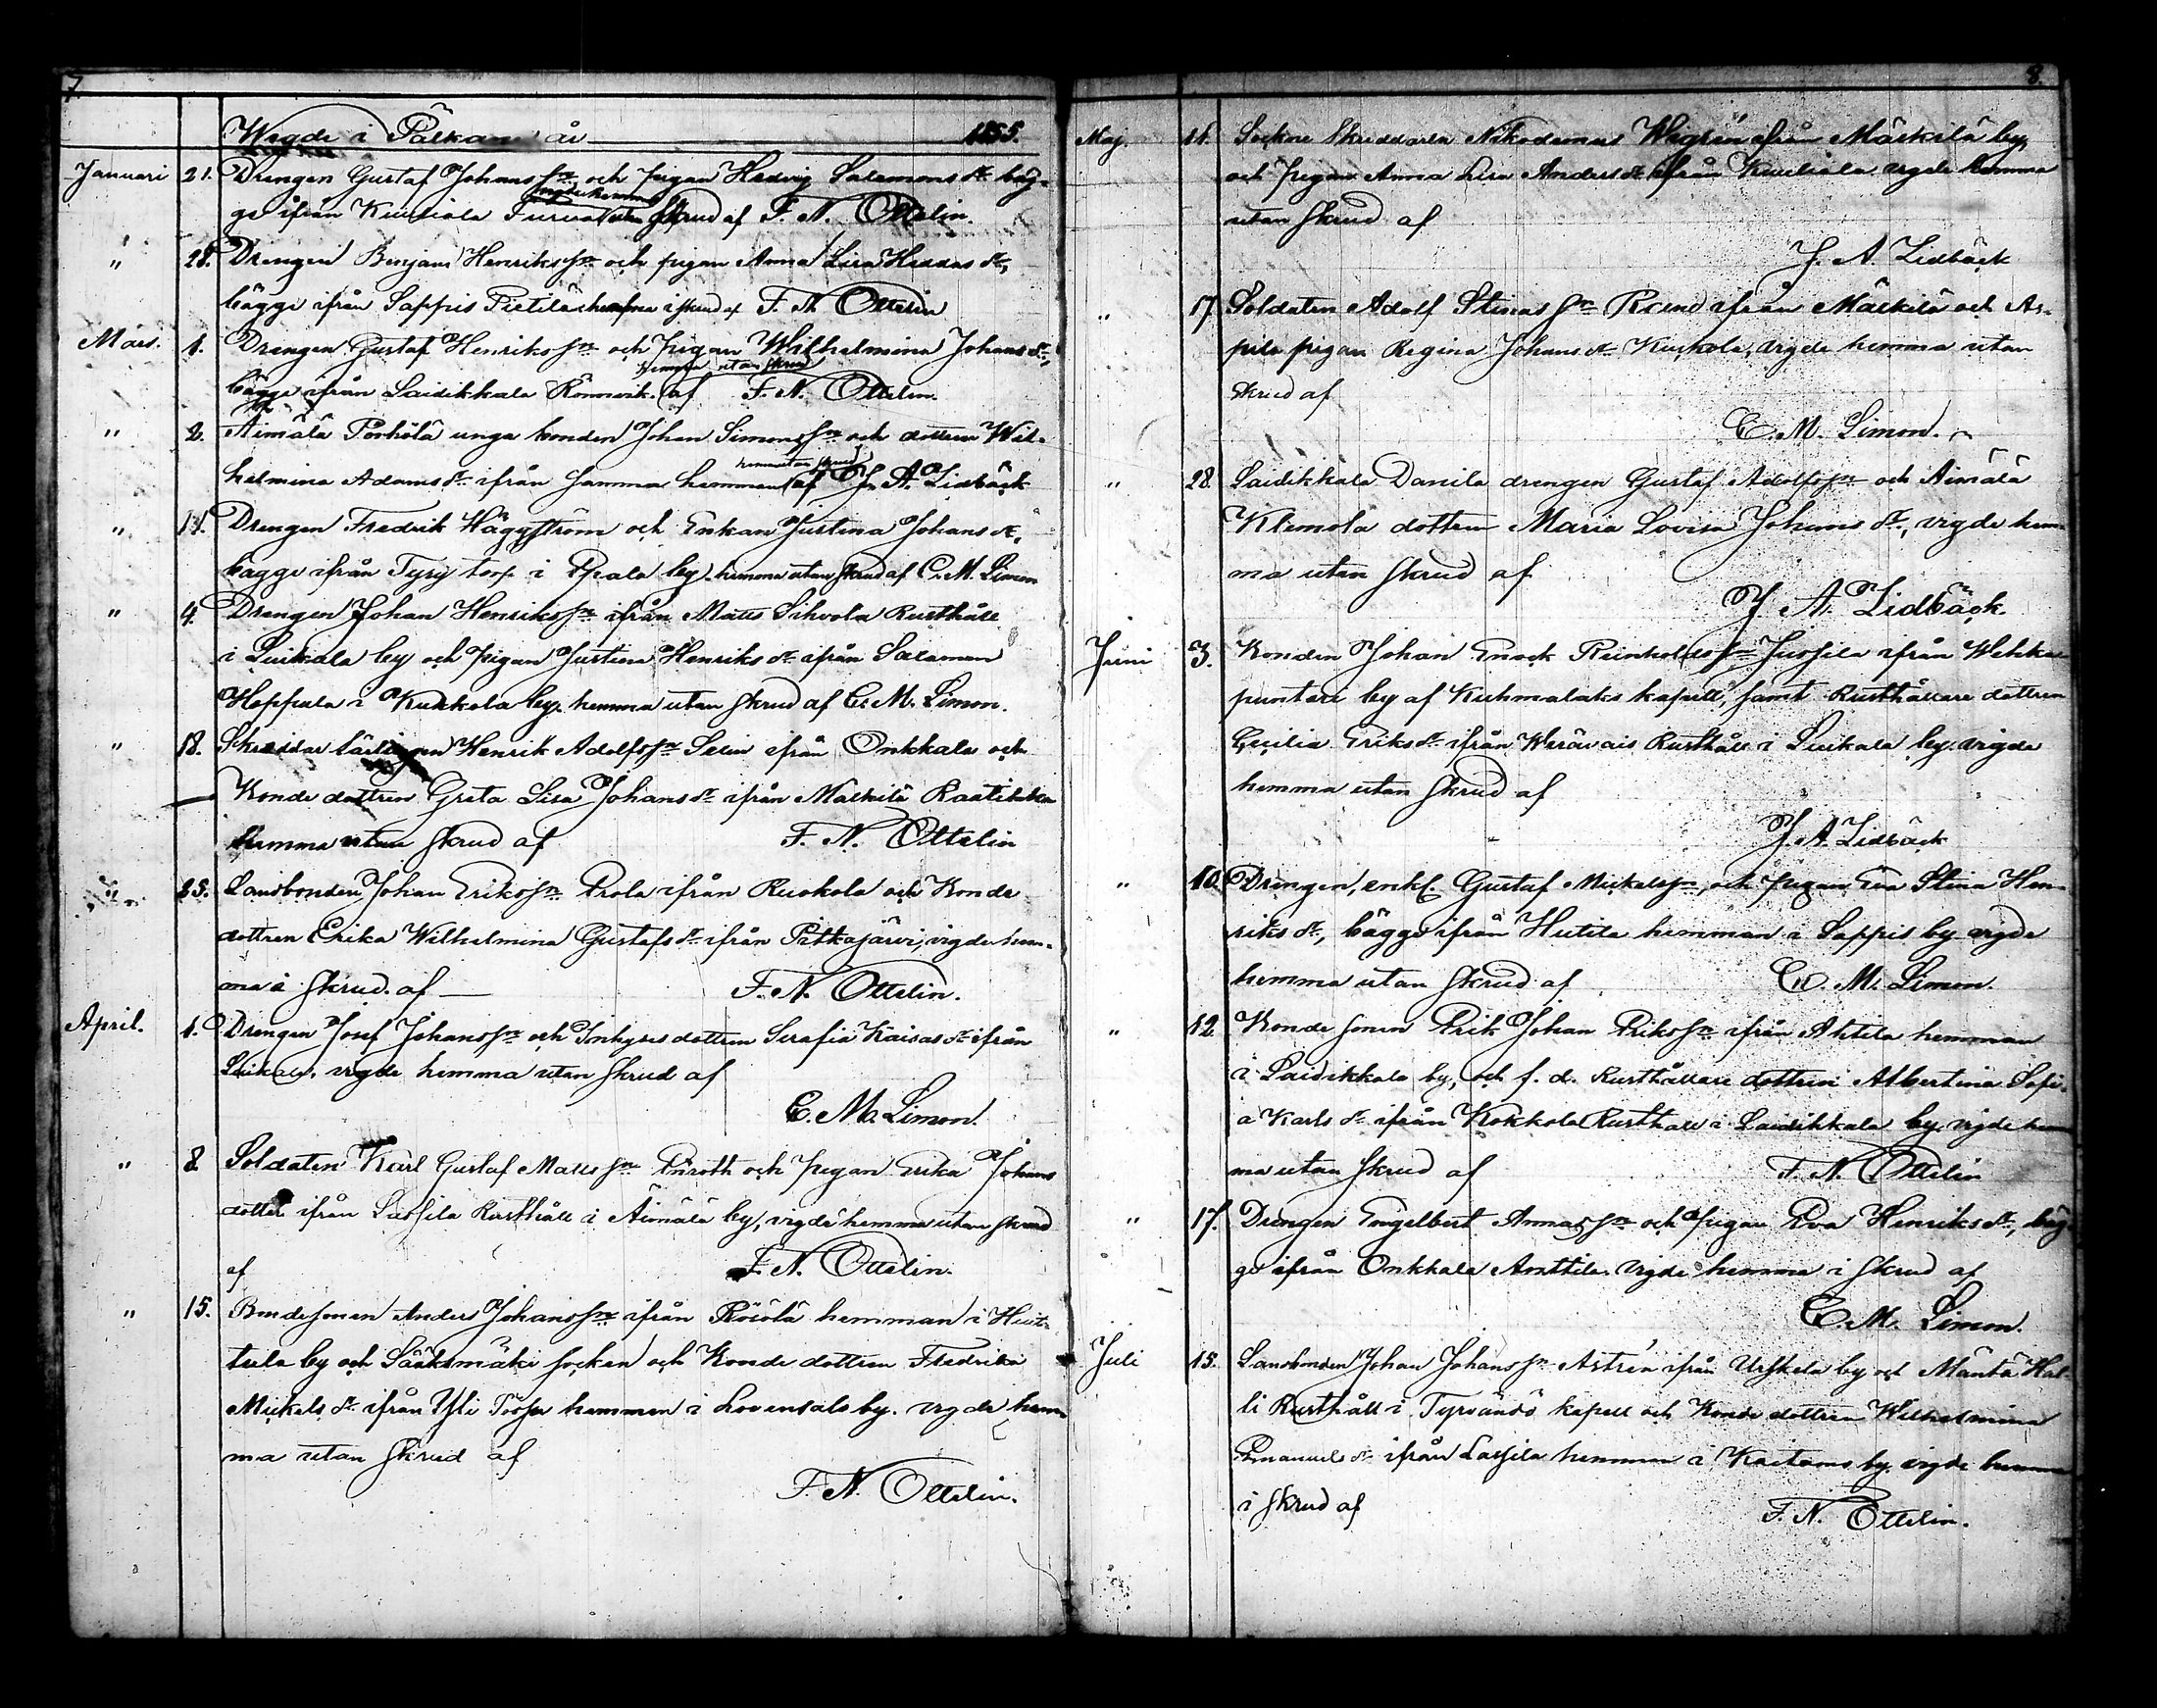 7.
Wigde i Pälkäne år 1855.
Januari 21. Drengen Gustaf Johansson och pigan Hedvig Salomons dr bäg-
vigde hemma
ge ifrån Kuuliala utan skrud af F. N. Ottelin.
" 28. Drengen Benjam Henriksson och pigan Anna Lisa Heddas dr,
bägge ifrån Sappis Pietilä hemma i skrud af F. N. Ottelin
Mars. 1. Drengen Gustaf Henriksson och pigan Wilhelmina Johans dr,
hemma utan skrud
bägge ifrån Laidikkala Rönnvik. af F. N. Ottelin.
" 2. Aimälä Pörhölä unga bonden Johan Simonsson och dottren Wil-
hemma utan skrud
helmina Adams dr ifrån samma hemman af J. A. Lidbäck
" 11. Drengen Fredrik Häggström och Enkan Justina Johans dr,
bägge ifrån Tyry torp i Epala by hemma utan skrud af C. M. Limon
" 4. Drengen Johan Henriksson ifrån Matts Sihvola Rusthåll
i Luikala by och pigan Justina Henriks dr ifrån Salamon
Hoppala i Kukkola by. hemma utan skrud af C. M. Limon.
" 18. Skräddar lärlingen Henrik Adolfsson Selin ifrån Onkkala och
Bonde dottren Greta Lisa Johans dr ifrån Mälkilä Raatikka
hemma utan skrud af F. N. Ottelin
" 25. Landbonden Johan Eriksson Prola ifrån Ruokola och Bonde
dottren Erika Wilhelmina Gustafs dr ifrån Pitkäjärvi, vigde hem-
ma i skrud af F. N. Ottelin.
April. 1. Drengen Josef Johansson och Inhyses dottren Serafia Kaisas dr ifrån
Luikala, vigde hemma utan skrud af
C. M. Limon.
" 8 Soldaten Karl Gustaf Mattsson Enroth och pigan Erika Johans
dotter ifrån Lassila Rusthåll i Äimälä by, vigde hemma utan skrud
af F. N. Ottelin.
" 15. Bondesonen Anders Johansson ifrån hemman i Huit-
tula by och Sääksmäki socken och Bonde dottren Fredrika
Mickels dr ifrån Yli hemman i by. vigde hem-
ma utan skrud af
F. N. Ottelin.
8.
Maj. 16. Sockne Skräddaren Nikodemus Wegrén ifrån Mälkilä by,
och pigan Anna Lisa Anders dr ifrån Kuuliala vigde hemma
utan skrud af
J. A. Lidbäck
" 17. Soldaten Adolf Stinasson ifrån Mälkilä och As-
pila pigan Regina Johans dr Kuskola, vigde hemma utan
skrud af
C. M. Limon.
" 28. Laidikkala Danila drengen Gustaf Adolfsson och Aimälä
Klemola dottren Maria Lovisa Johans dr, vigde hem-
ma utan skrud af
J. A. Lidbäck.
Juni 3. Bonden Johan Enock Reinholdsson Jussila ifrån Wehka-
puntari by af Kuhmalaks kapell, samt Rusthållare dottren
Cecilia Eriks dr ifrån Rusthåll i Luikala by. vigde
hemma utan skrud af
J. A. Lidbäck
" 10. Drengen, enkl. Gustaf Mickelsson, och pigan Eva Stina Hen-
riks dr, bägge ifrån Hutila hemman i Sappis by vigde
hemma utan skrud af C. M. Limon.
" 12. Bonde sonen Erik Johan Eriksson ifrån Ahtila hemman
i Laidikkala by, och f. d. Rusthållare dottren Albertina Sofi-
a Karls dr ifrån Kokkola Rusthåll i Laidikkala by. vigde hem
ma utan skrud af F. N. Ottelin
" 17. Drengen Engelbert Annasson och pigan Eva Henriks dr, bäg-
ge ifrån Onkkala Anttila. vigde hemma i skrud af
C. M. Limon.
Juli 15. Landbonden Johan Johansson Astrén ifrån Urskela by och Mäntä Hal-
li Rusthåll i Tyrvändö kapell och Bonde dottren Wilhelmina
Emanuels dr ifrån Lassila hemman i Kaitamo by vigde hemma
i skrud af F. N. Ottelin.